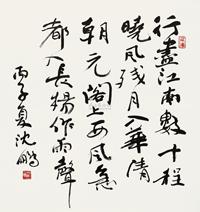 行盡江南數十程
曉風残月入華清
朝元閣上西風急
都入長楊作雨聲
丙子夏沈鵬